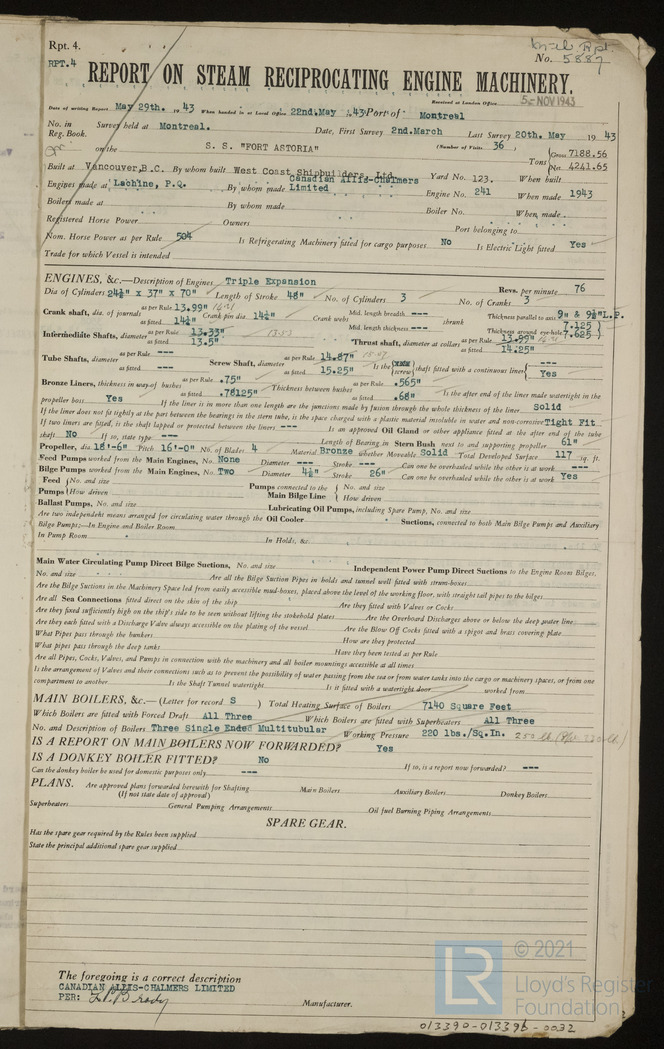 Rpt. 4.
RPT.4
No. 5887
REPORT ON STEAM RECIPROCATING ENGINE MACHINERY.
Received at London Office 5 NOV 1943
Date of writing Report May 29th. 1943 When handed in at Local Office 22nd.May 1943 Port of Montreal
No. in Reg. Book. Survey held at Montreal. Date, First Survey 2nd.March Last Survey 20th. May 1943
(Number of Visits 36)
on the S. S. "FORT ASTORIA" Tons Gross 7188.56
Net 4241.65
Built at Vancouver,B.C. By whom built West Coast Shipbuilders, Ltd. Yard No. 123. When built
Engines made at Lachine, P.Q. By whom made Canadian Allis-Chalmers Limited Engine No. 241 When made 1943
Boilers made at By whom made Boiler No. When made
Registered Horse Power Owners Port belonging to
Nom. Horse Power as per Rule 504 Is Refrigerating Machinery fitted for cargo purposes No Is Electric Light fitted Yes
Trade for which Vessel is intended
ENGINES, &c.—Description of Engines Triple Expansion Revs. per minute 76
Dia of Cylinders 24½" x 37" x 70" Length of Stroke 48" No. of Cylinders 3 No. of Cranks 3
Crank shaft, dia. of journals as per Rule 13.99" as fitted 14¼" Crank pin dia. 14¼" Crank webs Mid. length breadth --- Mid. length thickness --- shrunk Thickness parallel to axis 9" & 9½"L.P. Thickness around eye-hole 7.125 7.625
Intermediate Shafts, diameter as per Rule 13.33" as fitted 13.5" Thrust shaft, diameter at collars as per Rule 13.99" as fitted 14.25"
Tube Shafts, diameter as per Rule --- as fitted --- Screw Shaft, diameter as per Rule 14.87" as fitted 15.25" Is the screw shaft fitted with a continuous liner --- Yes
Bronze Liners, thickness in way of bushes as per Rule .75" as fitted .78125" Thickness between bushes as per Rule .565" as fitted .68" Is the after end of the liner made watertight in the
propeller boss Yes If the liner is in more than one length are the junctions made by fusion through the whole thickness of the liner Solid
If the liner does not fit tightly at the part between the bearings in the stern tube, is the space charged with a plastic material insoluble in water and non-corrosive Tight Fit
If two liners are fitted, is the shaft lapped or protected between the liners --- Is an approved Oil Gland or other appliance fitted at the after end of the tube
shaft No If so, state type --- Length of Bearing in Stern Bush next to and supporting propeller 61"
Propeller, dia. 18'-6" Pitch 16'-0" No. of Blades 4 Material Bronze whether Moveable Solid Total Developed Surface 117 sq. ft.
Feed Pumps worked from the Main Engines, No. None Diameter --- Stroke --- Can one be overhauled while the other is at work ---
Bilge Pumps worked from the Main Engines, No. Two Diameter 4½" Stroke 26" Can one be overhauled while the other is at work Yes
Feed Pumps No. and size How driven Pumps connected to the Main Bilge Line No. and size How driven
Ballast Pumps, No. and size Lubricating Oil Pumps, including Spare Pump, No. and size
Are two independent means arranged for circulating water through the Oil Cooler Suctions, connected to both Main Bilge Pumps and Auxiliary
Bilge Pumps:—In Engine and Boiler Room
In Pump Room In Holds, &c.
Main Water Circulating Pump Direct Bilge Suctions, No. and size Independent Power Pump Direct Suctions to the Engine Room Bilges,
No. and size Are all the Bilge Suction Pipes in holds and tunnel well fitted with strum-boxes
Are the Bilge Suctions in the Machinery Space led from easily accessible mud-boxes, placed above the level of the working floor, with straight tail pipes to the bilges
Are all Sea Connections fitted direct on the skin of the ship Are they fitted with Valves or Cocks
Are they fixed sufficiently high on the ship's side to be seen without lifting the stokehold plates Are the Overboard Discharges above or below the deep water line
Are they each fitted with a Discharge Valve always accessible on the plating of the vessel Are the Blow Off Cocks fitted with a spigot and brass covering plate
What Pipes pass through the bunkers How are they protected
What pipes pass through the deep tanks Have they been tested as per Rule
Are all Pipes, Cocks, Valves, and Pumps in connection with the machinery and all boiler mountings accessible at all times
Is the arrangement of Valves and their connections such as to prevent the possibility of water passing from the sea or from water tanks into the cargo or machinery spaces, or from one
compartment to another Is the Shaft Tunnel watertight Is it fitted with a watertight door worked from
MAIN BOILERS, &c.—(Letter for record S) Total Heating Surface of Boilers 7140 Square Feet
Which Boilers are fitted with Forced Draft All Three Which Boilers are fitted with Superheaters All Three
No. and Description of Boilers Three Single Ended Multitubular Working Pressure 220 lbs./Sq.In.
IS A REPORT ON MAIN BOILERS NOW FORWARDED? Yes
IS A DONKEY BOILER FITTED? No If so, is a report now forwarded? ---
Can the donkey boiler be used for domestic purposes only ---
PLANS. Are approved plans forwarded herewith for Shafting Main Boilers Auxiliary Boilers Donkey Boilers
(If not state date of approval)
Superheaters General Pumping Arrangements Oil fuel Burning Piping Arrangements
SPARE GEAR.
Has the spare gear required by the Rules been supplied
State the principal additional spare gear supplied
The foregoing is a correct description
CANADIAN ALLIS-CHALMERS LIMITED
PER: Manufacturer.
© 2021
LR
Lloyd's Register
Foundation
013390-013396-0032